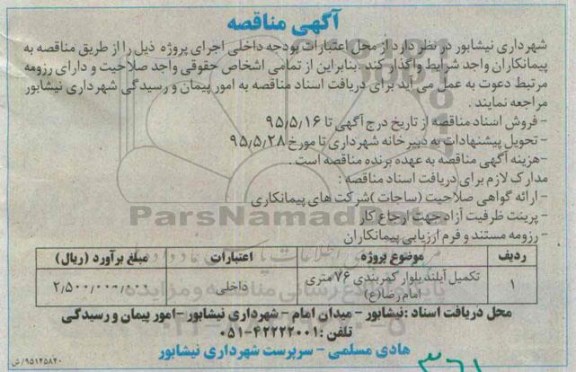 آگهی مناقصه
شهرداری نیشابور در نظر دارد از محل اعتبارات بودجه داخلی اجرای پروژه ذیل را از طریق مناقصه به
پیمانکاران واجد شرایط واگذار کند. بنابراین از تمامی اشخاص حقوقی واجد صلاحیت و دارای رزومه
مرتبط دعوت به عمل می آید برای دریافت اسناد مناقصه به امور پیمان و رسیدگی شهرداری نیشابور
مراجعه نمایند.
- فروش اسناد مناقصه از تاریخ درج آگهی تا ۹۵/۵/۱۶
- تحویل پیشنهادات به دبیرخانه شهرداری تا مورخ ۹۵/۵/۲۸
- هزینه آگهی مناقصه به عهده برنده مناقصه است.
مدارک لازم برای دریافت اسناد مناقصه:
- ارائه گواهی صلاحیت (ساجات) شرکت های پیمانکاری
- پرینت ظرفیت آزاد جهت ارجاع کار
- رزومه مستند و فرم ارزیابی پیمانکاران
ردیف موضوع پروژه اعتبارات مبلغ برآورد (ریال)
۱ تکمیل آیلند بلوار کمربندی ۷۶ متری امام رضا(ع) داخلی ۲/۵۰۰/۰۰۰/۰۰۰
محل دریافت اسناد: نیشابور - میدان امام - شهرداری نیشابور - امور پیمان و رسیدگی
تلفن: ۴۲۲۲۲۰۰۱-۰۵۱
هادی مسلمی - سرپرست شهرداری نیشابور
۹۵۱۲۵۸۲۰/ش
۳۶۱
ParsNamadData